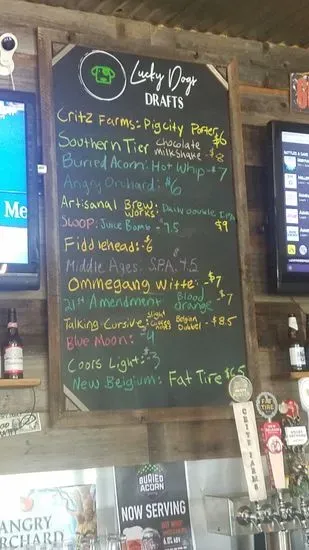 Lucky Dogs
DRAFTS
Critz Farms: Pig City Porter $6
Southern Tier Chocolate Milkshake -$8
Buried Acorn: Hot Whip -$7
Angry Orchard: $6
Artisanal Brew Works: Daily Double IPA $9
SLOOP: Juice Bomb -$7.5
Fiddlehead: $6
Middle Ages: S.P.A. 7.5
Ommegang Witte: -$7
21st Amendment Blood Orange -$7
Talking Cursive: Belgian Dubbel -$8.5
Blue Moon: -4
Coors Light: $3
New Belgium: Fat Tire $6.5
Me
BURIED
ACORN
NOW SERVING
ANGRY
ORCHARD
CRITZ FARMS
FAT TIRE